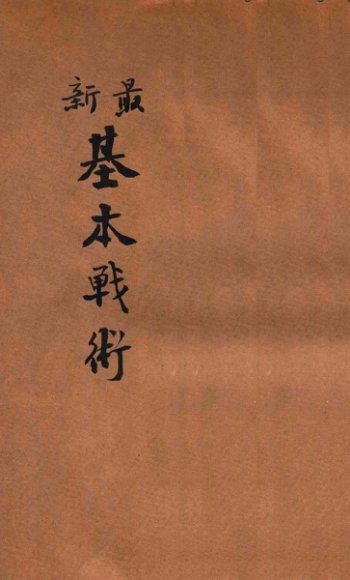 最新
基本戦術